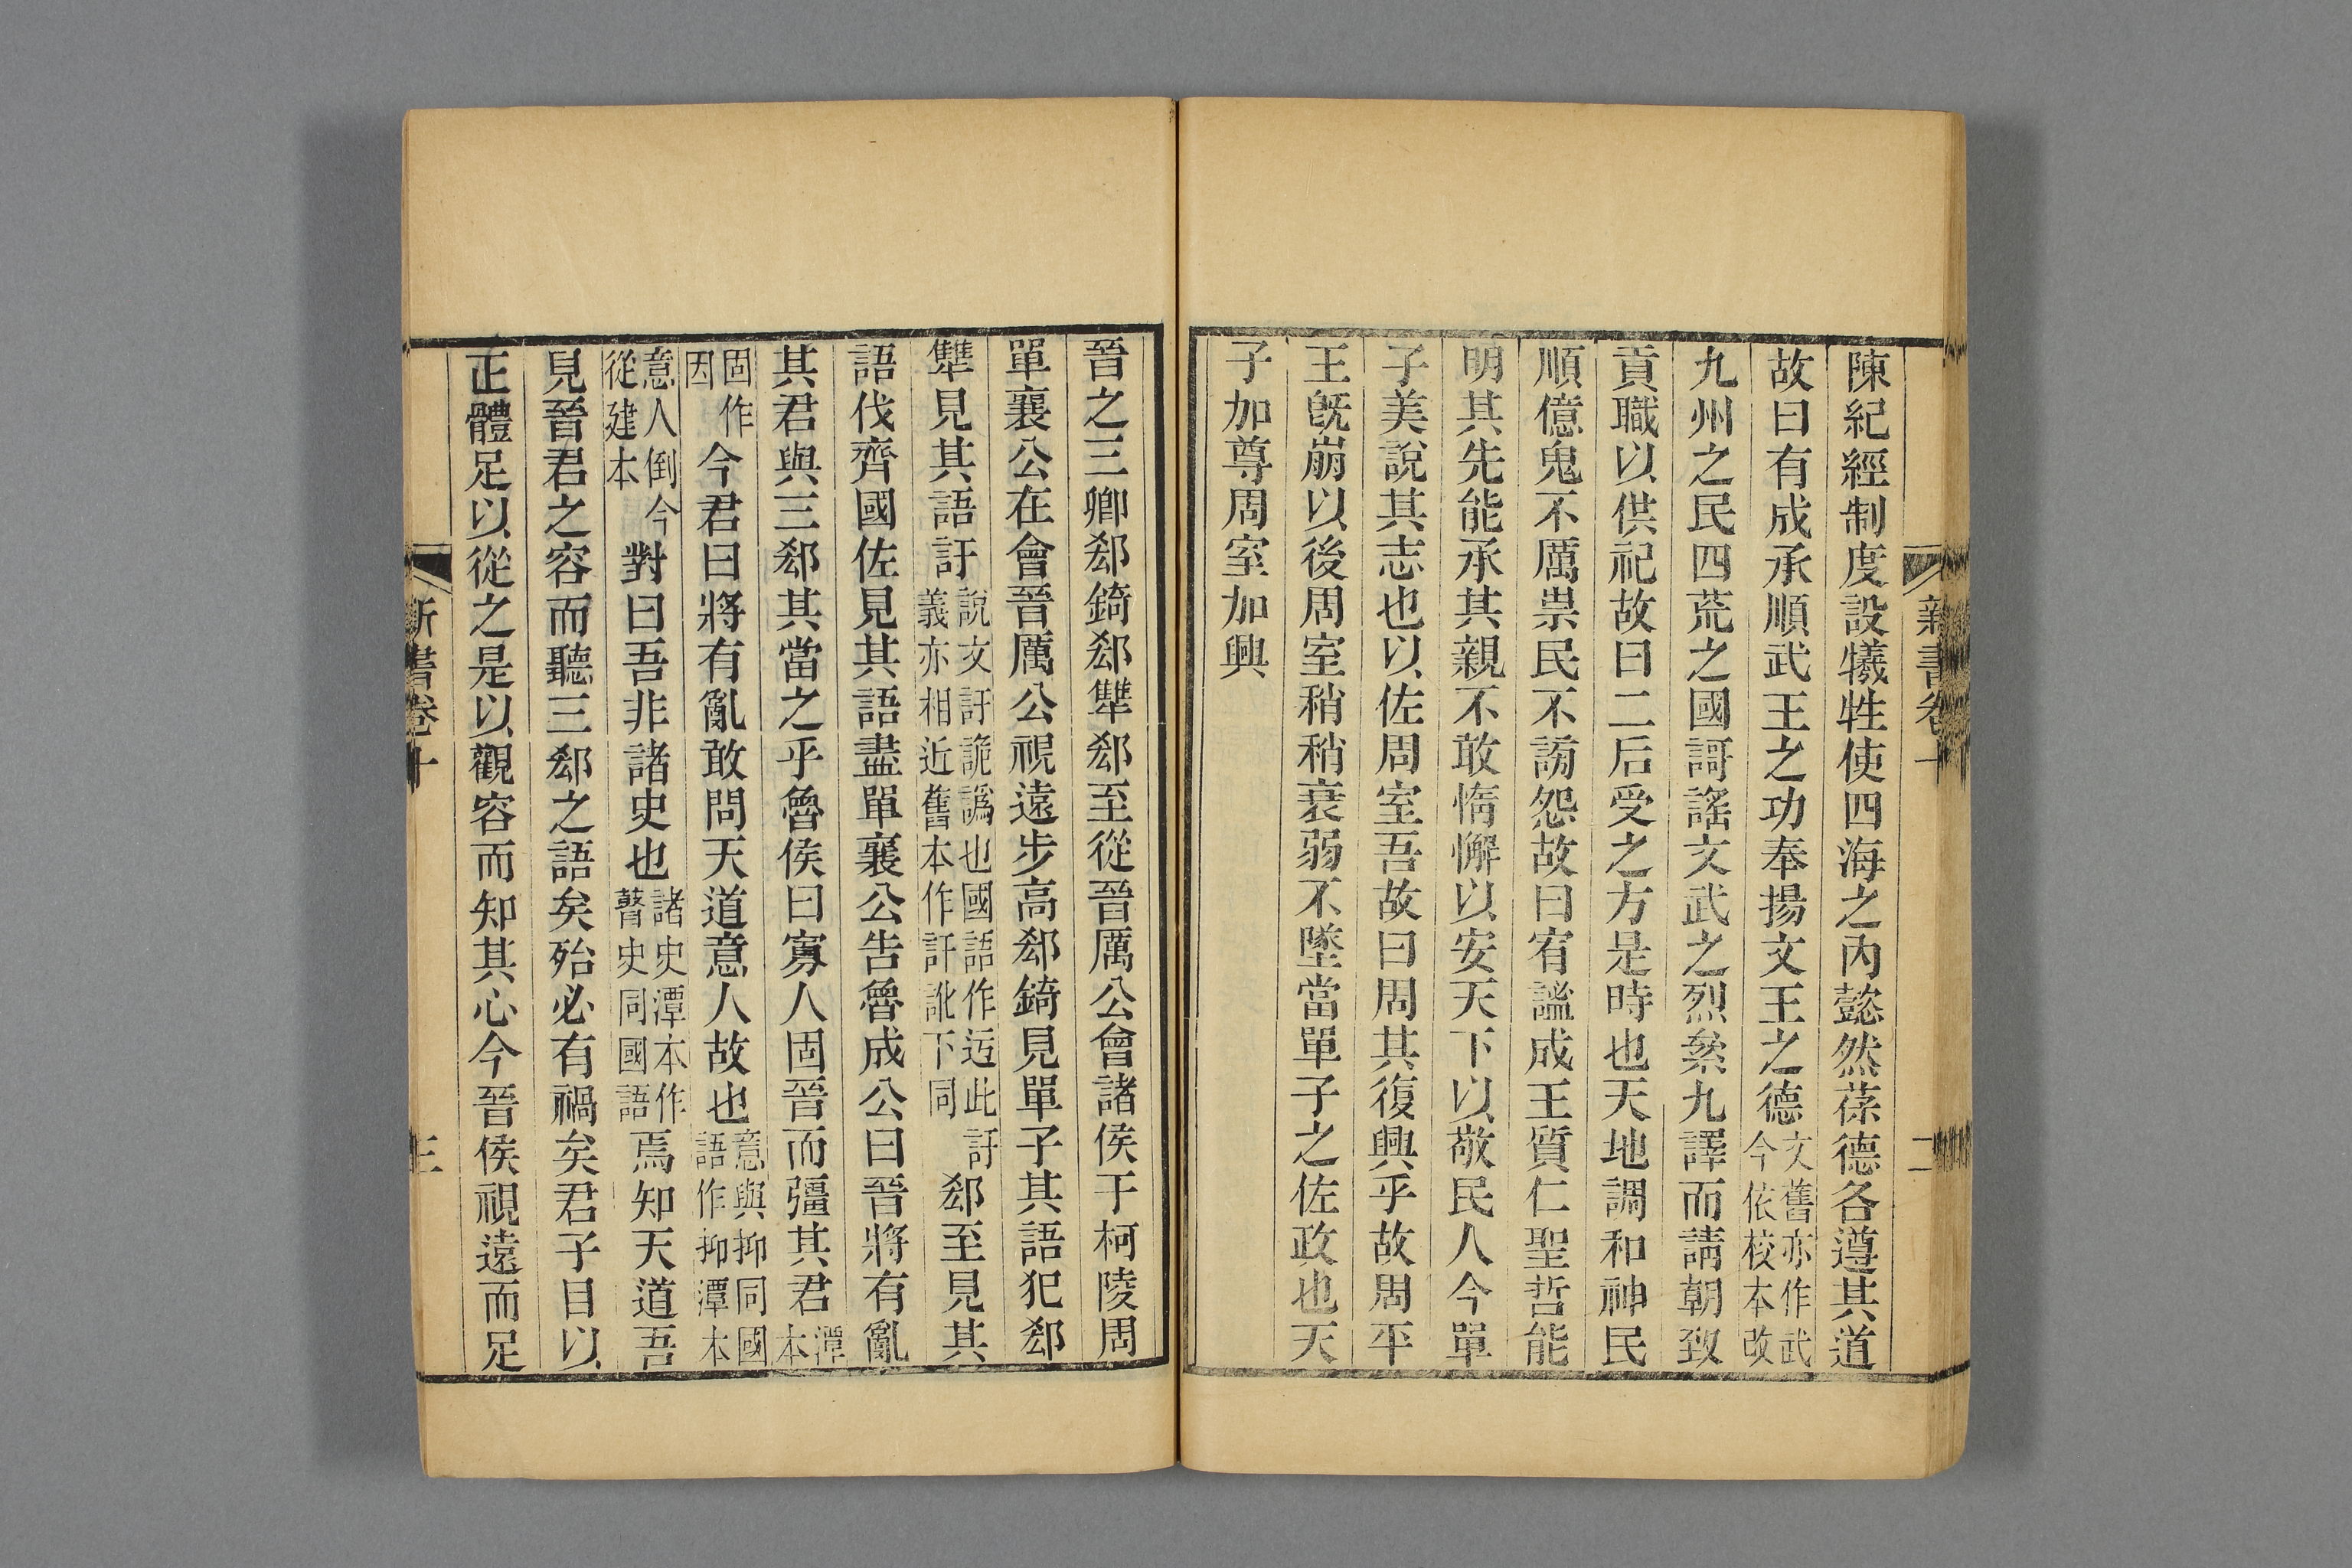 新書卷十
二
陳紀經制度設犧牲使四海之內懿然葆德各遵其道
故曰有成承順武王之功奉揚文王之德文舊亦作武今依校本改
九州之民四荒之國謌謠文武之烈絫九譯而請朝致
貢職以供祀故曰二后受之方是時也天地調和神民
順億鬼不厲祟民不謗怨故曰宥謐成王質仁聖哲能
明其先能承其親不敢惰懈以安天下以敬民人今單
子美說其志也以佐周室吾故曰周其復興乎故周平
王既崩以後周室稍稍衰弱不墜當單子之佐政也天
子加尊周室加興
晉之三卿郄錡郄犨郄至從晉厲公會諸侯于柯陵周
單襄公在會晉厲公視遠步高郄錡見單子其語犯郄
犨見其語訏說文訏詭譌也國語作迃此訏義亦相近舊本作訐訛下同郄至見其
語伐齊國佐見其語盡單襄公告魯成公曰晉將有亂
其君與三郄其當之乎魯侯曰寡人固晉而彊其君潭本
固作因今君曰將有亂敢問天道意人故也意與抑同國語作抑潭本
意人倒今從建本對曰吾非諸史也諸史潭本作瞽史同國語焉知天道吾
見晉君之容而聽三郄之語矣殆必有禍矣君子目以
正體足以從之是以觀容而知其心今晉侯視遠而足
新書卷十
三